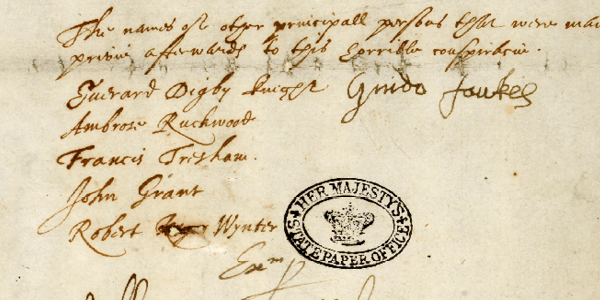 The names of other principall persons that were made
privie afterwards to this horrible conspiracie.
Everard Digby knight Guido fawkes
Ambrose Ruckwood
Francis Tresham.
John Grant
Robert Wynter
HER MAJESTY'S
STATE PAPER OFFICE